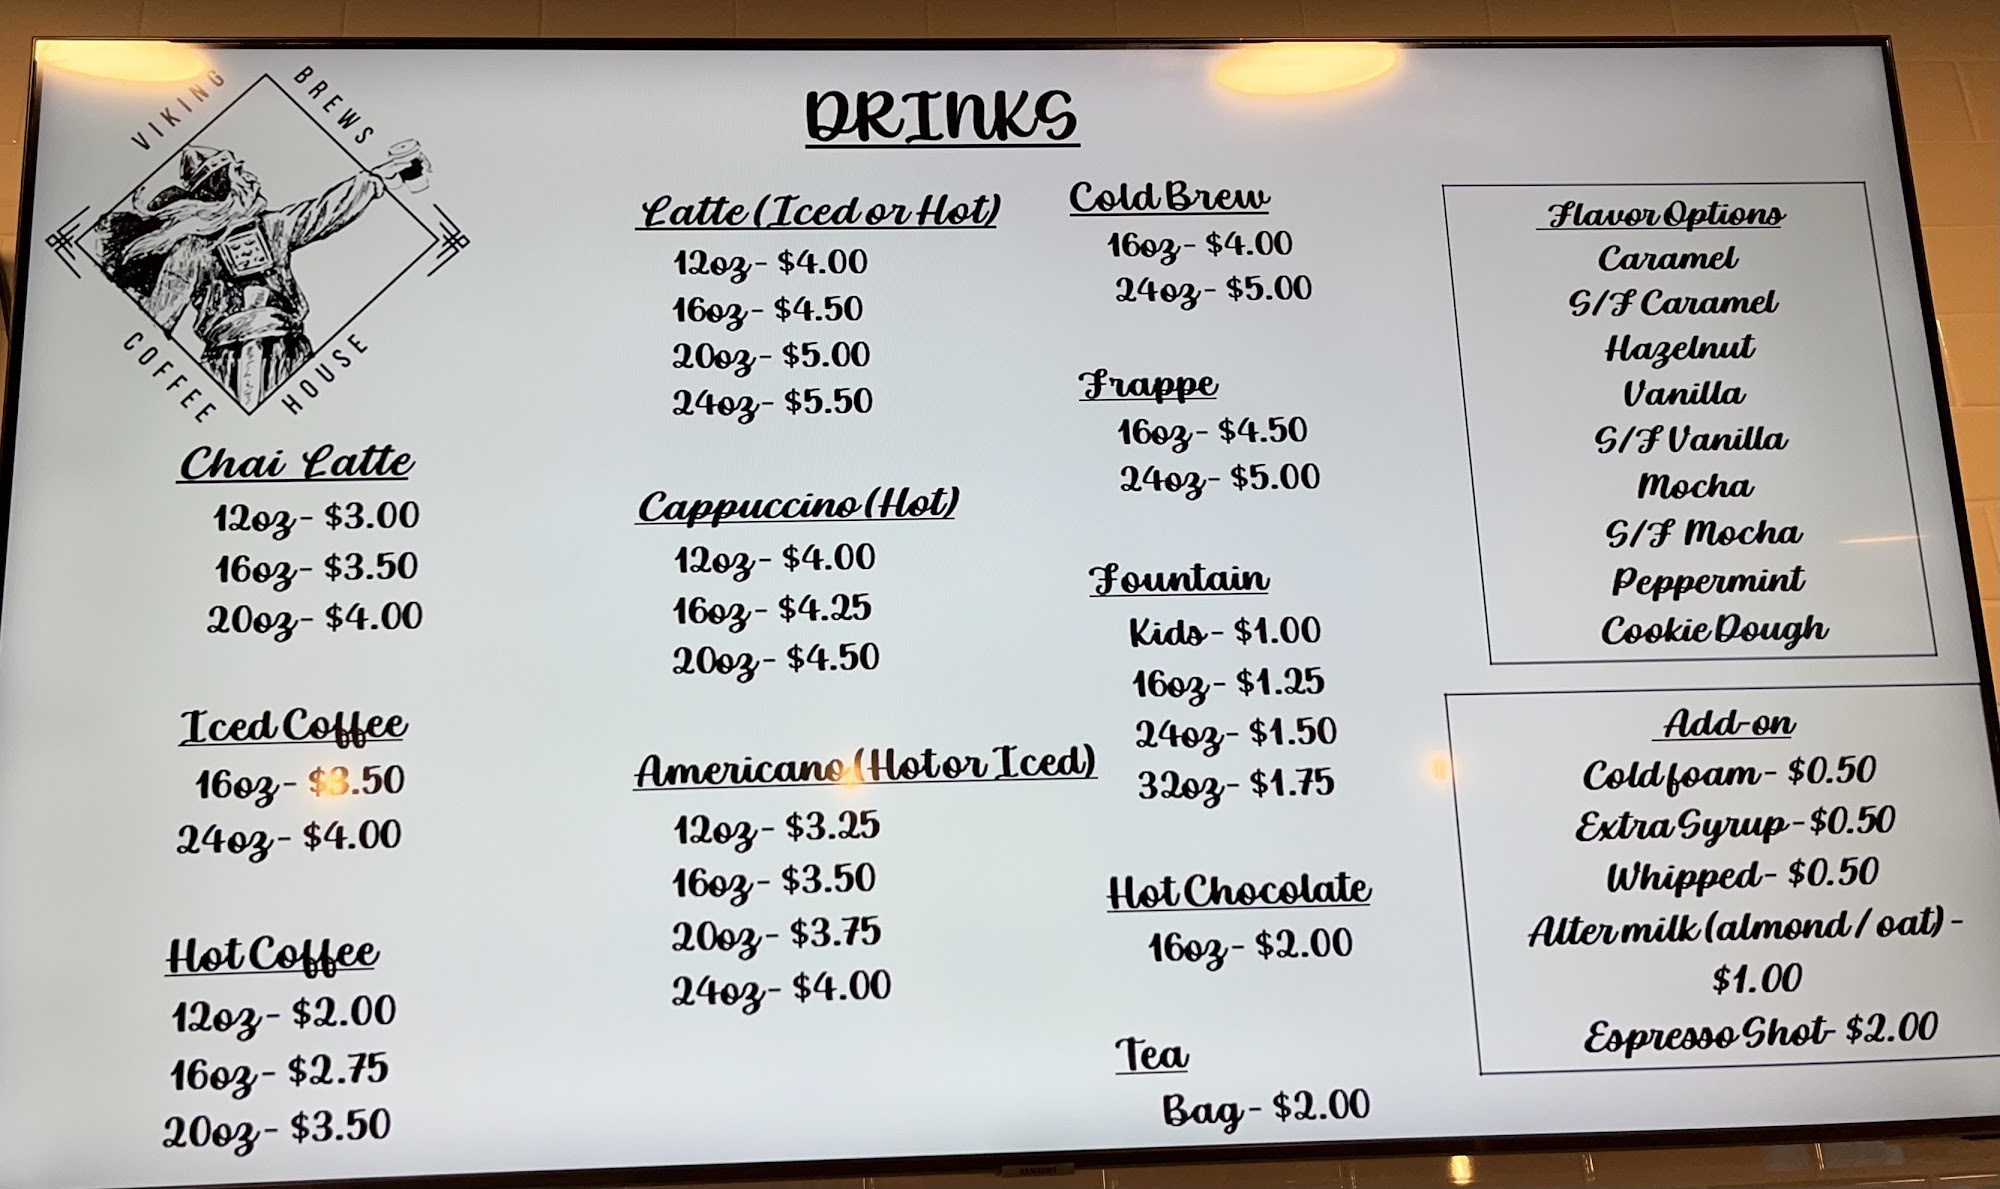 VIKING BREWS
COFFEE HOUSE
DRINKS
Chai Latte
12oz- $3.00
16oz- $3.50
20oz- $4.00
Iced Coffee
16oz- $3.50
24oz- $4.00
Hot Coffee
12oz- $2.00
16oz- $2.75
20oz- $3.50
Latte (Iced or Hot)
12oz- $4.00
16oz- $4.50
20oz- $5.00
24oz- $5.50
Cappuccino (Hot)
12oz- $4.00
16oz- $4.25
20oz- $4.50
Americano (Hot or Iced)
12oz- $3.25
16oz- $3.50
20oz- $3.75
24oz- $4.00
Cold Brew
16oz- $4.00
24oz- $5.00
Frappe
16oz- $4.50
24oz- $5.00
Fountain
Kids- $1.00
16oz- $1.25
24oz- $1.50
32oz- $1.75
Hot Chocolate
16oz- $2.00
Tea
Bag- $2.00
Flavor Options
Caramel
S/F Caramel
Hazelnut
Vanilla
S/F Vanilla
Mocha
S/F Mocha
Peppermint
Cookie Dough
Add-on
Cold foam- $0.50
Extra Syrup-$0.50
Whipped- $0.50
Alter milk (almond / oat) -
$1.00
Espresso Shot- $2.00
SAMSUNG